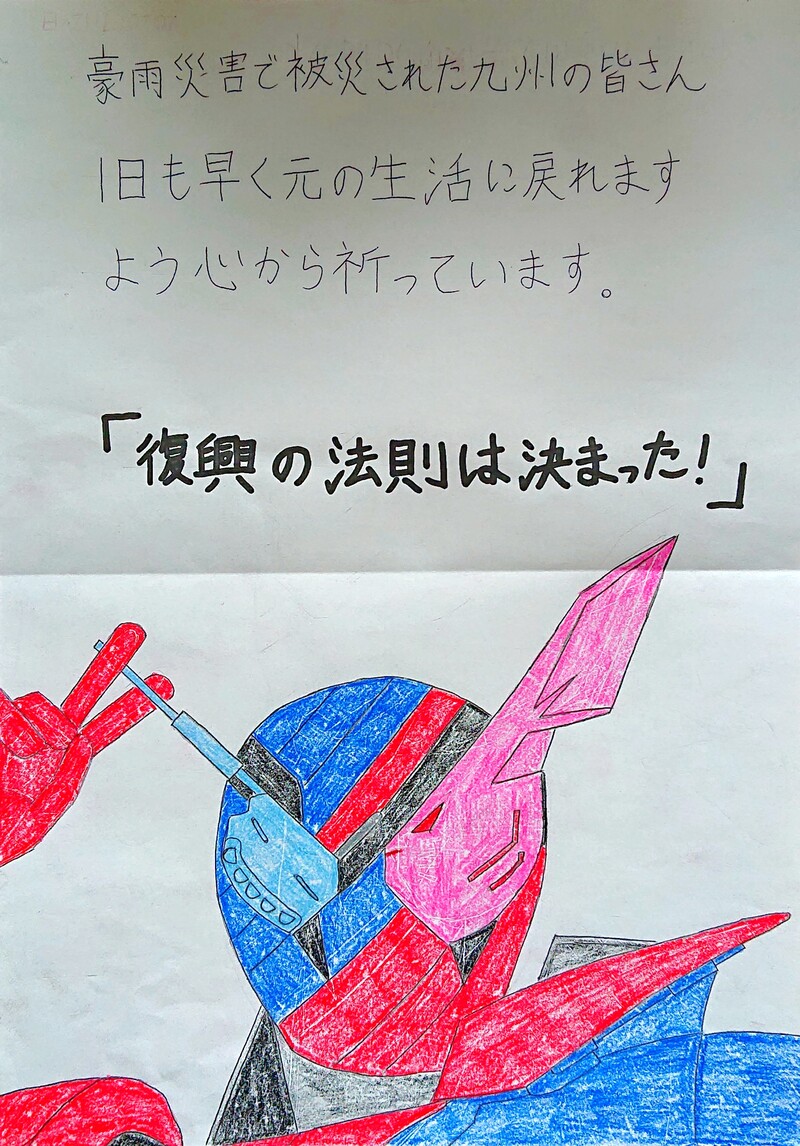 豪雨災害で被災された九州の皆さん
1日も早く元の生活に戻れます
よう心から祈っています。
「復興の法則は決まった!」